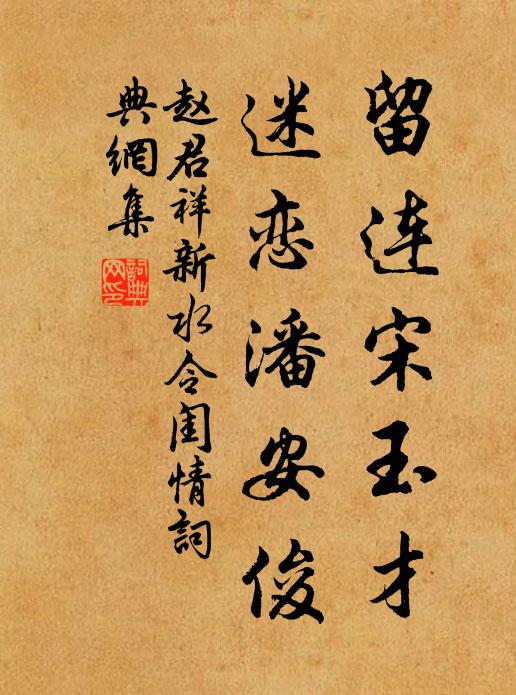 留连宋玉才
迷恋潘安俊
赵君祥新水令闺情詞
典網集
詞典
网印